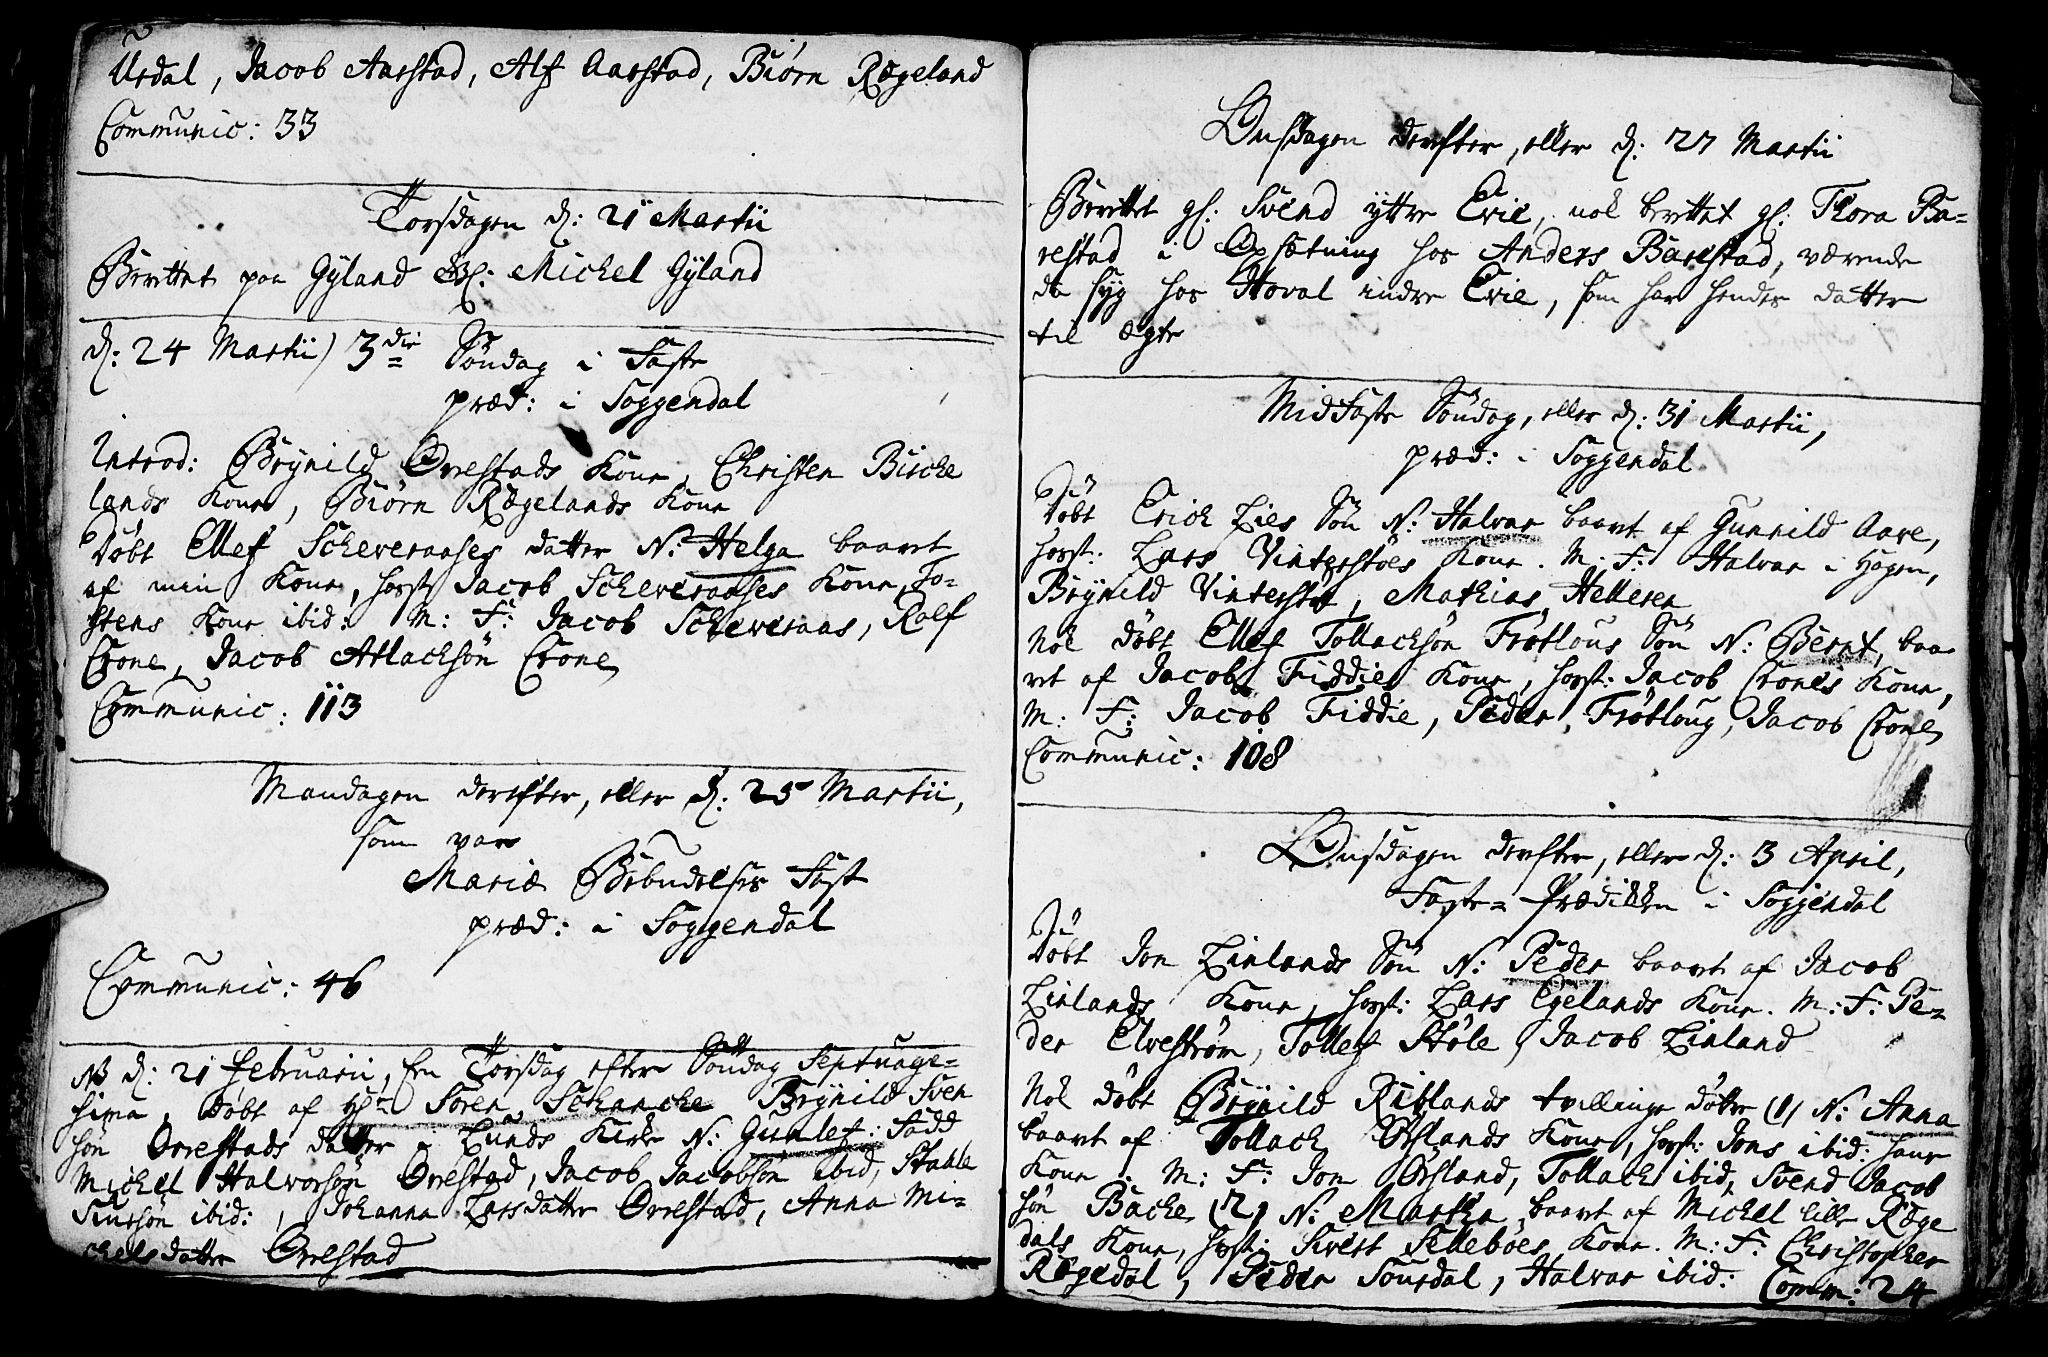 Urdal, Jacob Aarstad, Alf Aarstad, Biørn Rægeland
Communic: 33
Torsdagen d: 21 Martii
Berettet paa Gyland Michel Gyland
d: 24 Martii) 3die Søndag i Faste
præd: i Soggendal
Introd: Brynild Orrestads Kone, Christen Bircke
lands Kone, Biørn Rægelands Kone
Døbt Ellef Scheveraases datter N: Helga baaret
af min Kone, hosst: Jacob Scheveraases Kone, To-
stens Kone ibid: M: F: Jacob Scheveraas, Rolf
Crone, Jacob Atlachsøn Crone
Communic: 113
Mandagen derefter, eller d: 25 Martii,
som var
Mariæ Bebudelses Fæst
præd: i Soggendal
Communic: 46
NB d: 21 Februarii, een Torsdag efter Søndag Septuage-
sima, døbt af Hr Søren Schancke Brynild Sven
søn Orrestads datter i Lunds Kirke N: Gunlef: Fadd
Michel Halvorsøn Orrestad, Jacob Jacobsøn ibid, Staale
Siursøn ibid:, Johanna Larsdatter Orrestad, Anna Mi-
chelsdatter Orrestad
Onsdagen derefter, eller d: 27 Martii
Berettet gl: Svend yttre Evie, nok berettet gl: Thora Ba-
restad i Opsætning hos Anders Barestad, værende
da syg hos Hoval indre Evie, som har hendes datter
til ægte
MidFaste Søndag, eller d: 31 Martii,
præd: i Soggendal
Døbt Erich Lies Søn N: Halvar baaret af Gunnild Aare,
hosst: Lars Vinterstøes Kone. M: F: Halvar i Hagen,
Brynild Vinterstø, Mathias Helleren
Nok døbt Ellef Tollachsøn Frøtlous Søn N: Bernt, baa-
ret af Jacob Fiddies Kone, hosst: Jacob Crones Kone,
M: F: Jacob Fiddie, Peder Frøtloug, Jacob Crone
Communic: 108
Onsdagen derefter, eller d: 3 April,
Faste-Prædiken i Soggendal
Døbt Jon Linlands Søn N: Peder baaret af Jacob
Linlands Kone, hosst: Lars Egelands Kone. M: F: Pe-
der Elvestrøm, Tollef Støle, Jacob Linland
Nok døbt Brynild Rublands tvillinge døtre (1) N: Anna
baaret af Tollach Ørslands Kone, hosst: Jons ibid: hans
Kone. M: F: Jon Ørsland, Tollach ibid, Svend Jacob
søn Bache (2) N: Martha, baaret af Michel lille Ræge
dals Kone, hosst: Sivert Selleboes Kone. M: F: Christopher
Rægedal, Peder Sourdal, Halvar ibid: Comm: 24